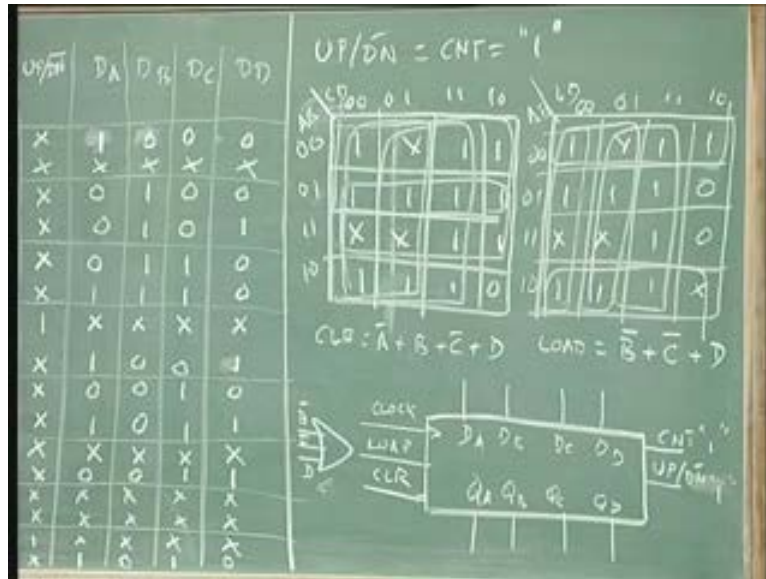 UP/D̅N̅ DA DB DC DD
X 1 0 0 0
X X X X X
X 0 1 0 0
X 0 1 0 1
X 0 1 1 0
X 1 1 1 0
1 X X X X
X 1 0 0 1
X 0 0 1 0
X 1 0 1 1
X X X X X
X 0 0 1 1
X X X X X
X X X X X
1 X X X X
X 1 0 1 0
UP/D̅N̅ = CNT = "1"
AB CD 00 01 11 10
00 1 X 1 1
01 1 1 1 1
11 X X 1 1
10 1 1 1 0
CLR = A̅ + B + C̅ + D
AB CD 00 01 11 10
00 1 X 1 1
01 1 1 1 0
11 X X 1 0
10 1 1 1 X
LOAD = B̅ + C̅ + D
CLOCK
LOAD
CLR
DA DB DC DD
QA QB QC QD
CNT "1"